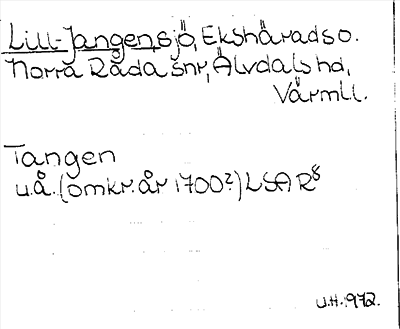 Lill-Jangensjö, Ekshärads o.
Norra Råda snr, Älvdals hd,
Värml.
Tangen
u.å. (omkr. år 1700?) LSA R8
U.H. 1972.